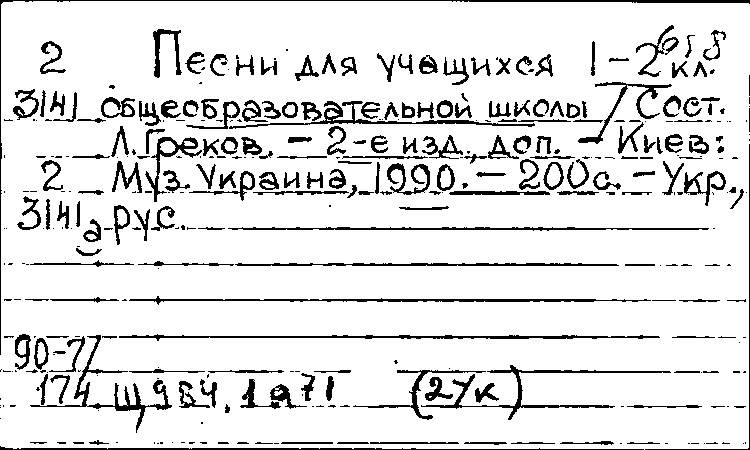 2 Песни для учащихся 1-2 кл.
3141 общеобразовательной школы / Сост.
Л. Греков. - 2-е изд., доп. - Киев:
2 Муз. Украина, 1990. - 200 с. - Укр.,
3141а рус.
90-7/
174 Щ984.1я71 (2Ук)